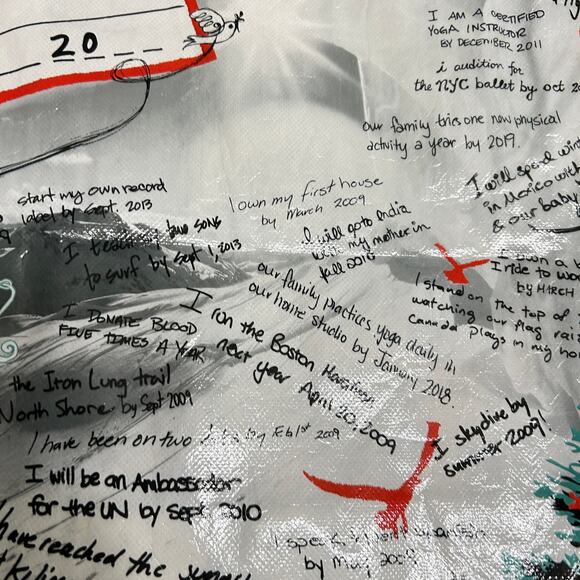 20
I AM A CERTIFIED
YOGA INSTRUCTOR
BY DECEMBER 2011
i audition for
the NYC ballet by oct
our family tries one new physical
activity a year by 2019.
I will spend
in Mexico with
& our baby
start my own record
label by Sept. 2013
I own my first house
by March 2009
I will go to India
with my mother in
fall 2010
I two sons
to surf by Sept 1, 2013
I DONATE BLOOD
FIVE TIMES A YEAR
our family practices yoga daily in
our home studio by January 2018.
I own a
I ride to
BY MARCH
I stand on the top of
watching our flag
Canada plays in my
I run the Boston Marathon
next year April 20, 2009
the Iron Lung trail
North Shore by Sept 2009
I have been on two by Feb 1st 2009
I skydive by
summer 2009!
I will be an Ambassador
for the UN by Sept 2010
I speak Spanish
by May
have reached the